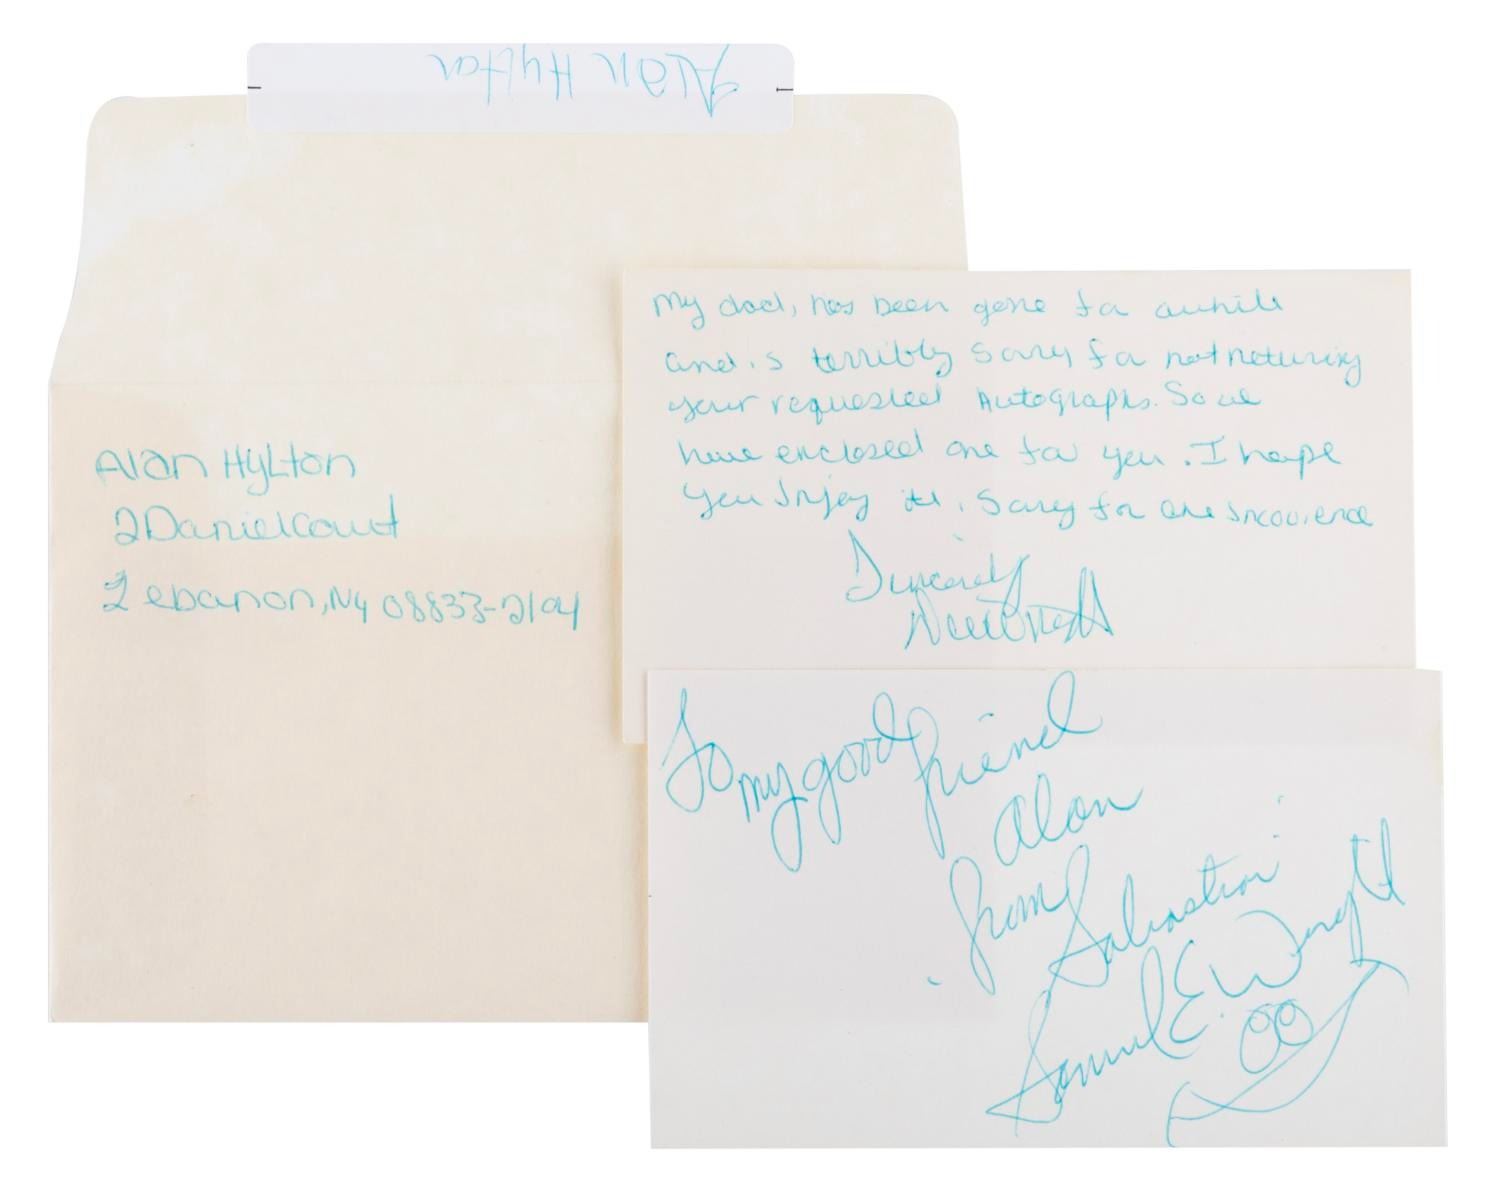 Alan Hylton
Alan Hylton
2 Daniel Court
Lebanon, NJ 08833-2104
My dad, has been gone for awhile
and is terribly sorry for not returing
your requested Autographs. So we
have enclosed one for you. I hope
you Injoy it!. Sorry for the Incovience
Sincerely
To my good friend
Alan
from
"Sabastian"
Samuel E. Wright